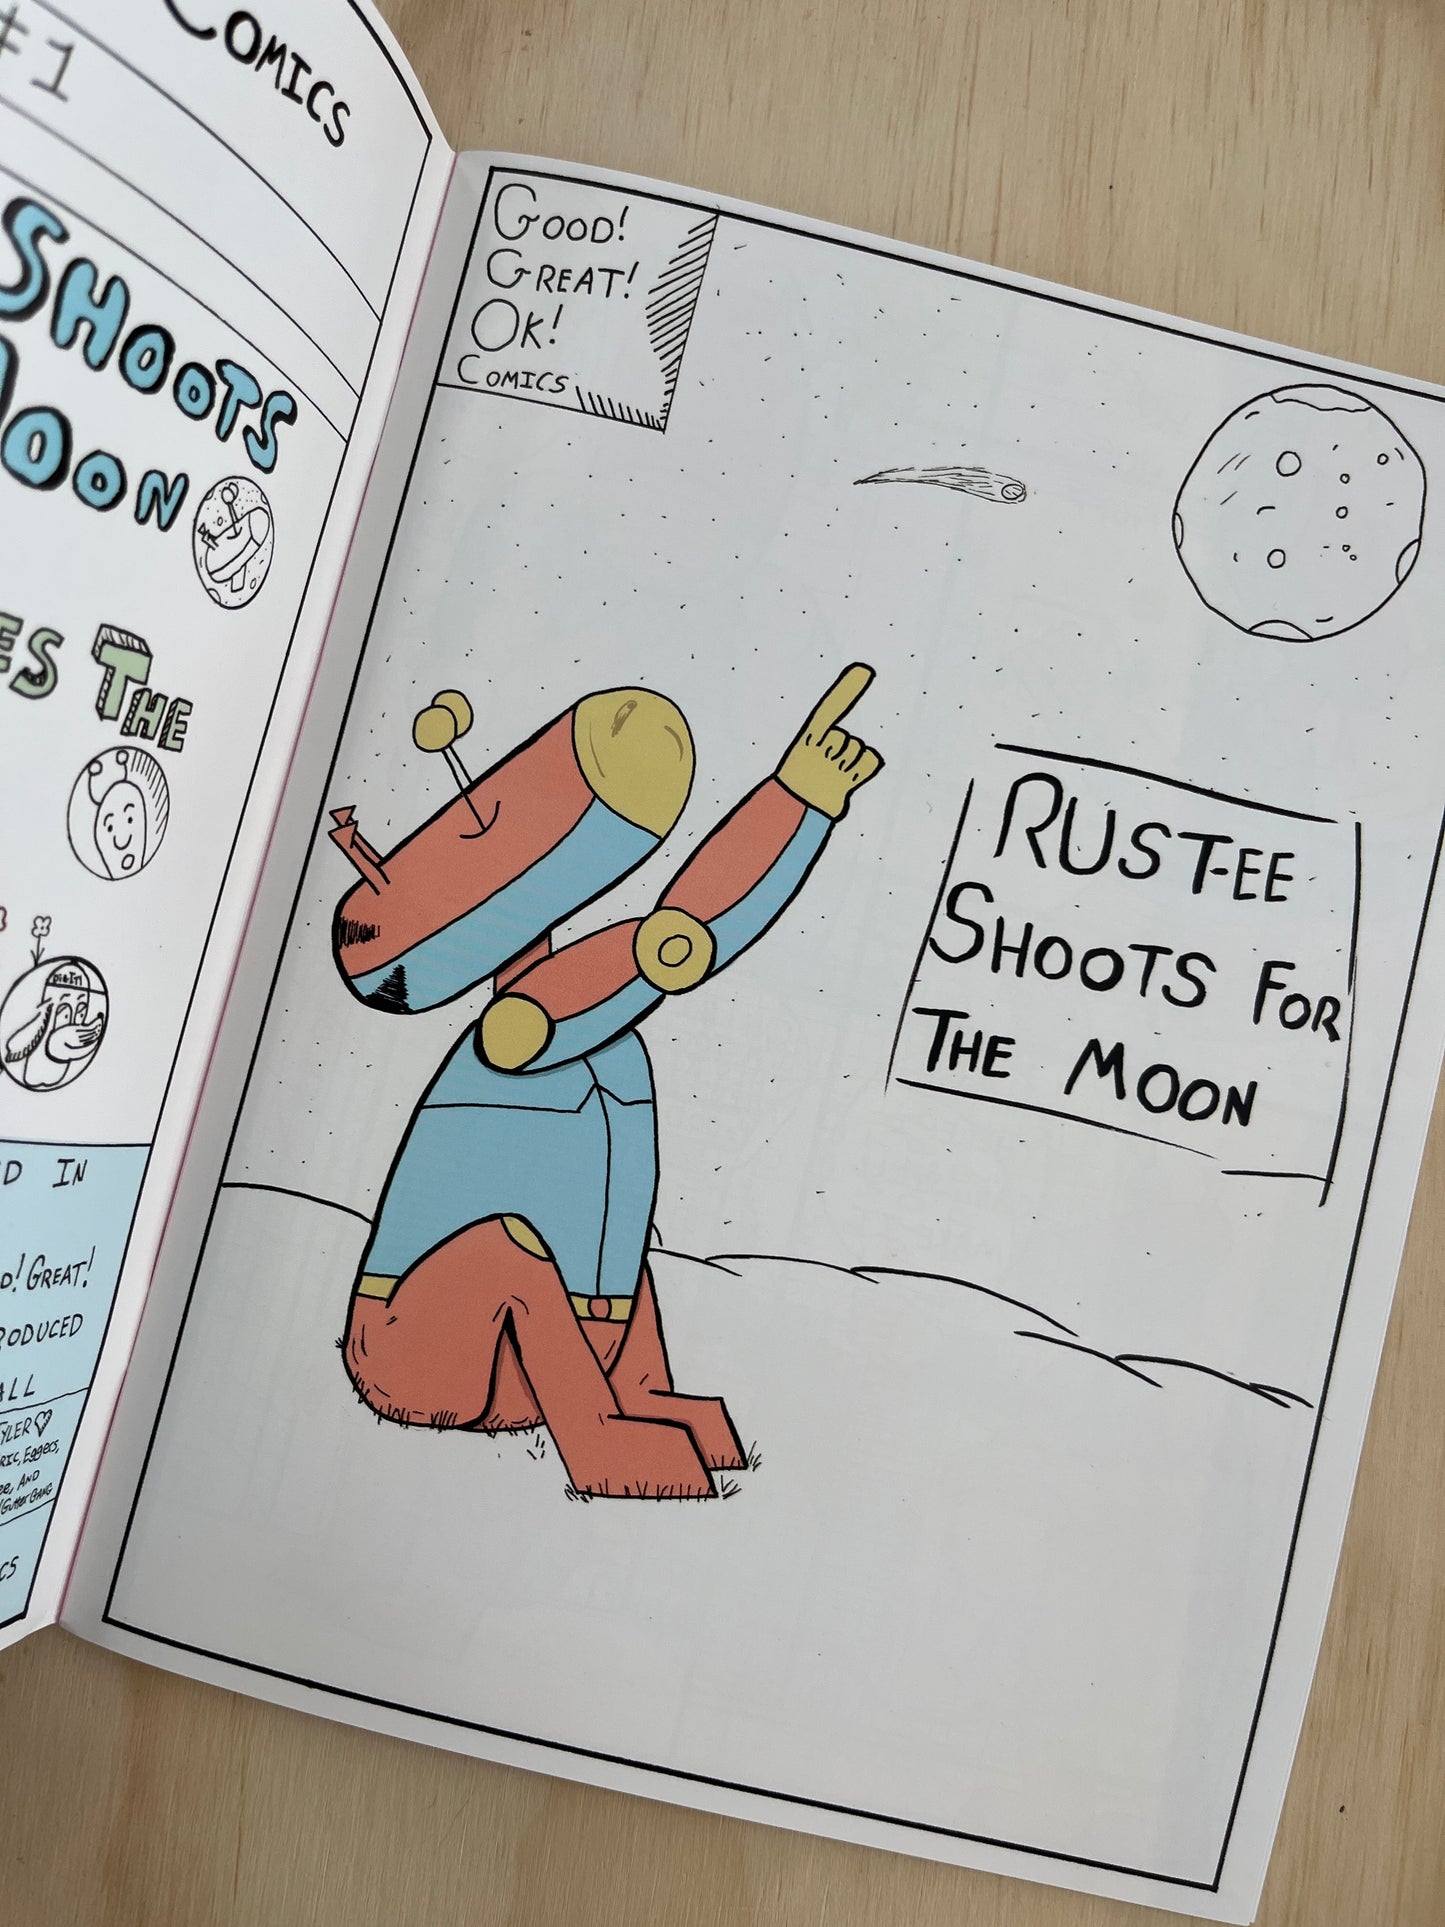 COMICS
#1
SHOOTS
MOON
ES THE
DIGIT!
D IN
D! GREAT!
RODUCED
ALL
TYLER
RIC, Eggers,
ee, AND
Gutter GANG
CS
GOOD!
GREAT!
OK!
COMICS
RUST-EE
SHOOTS FOR
THE MOON